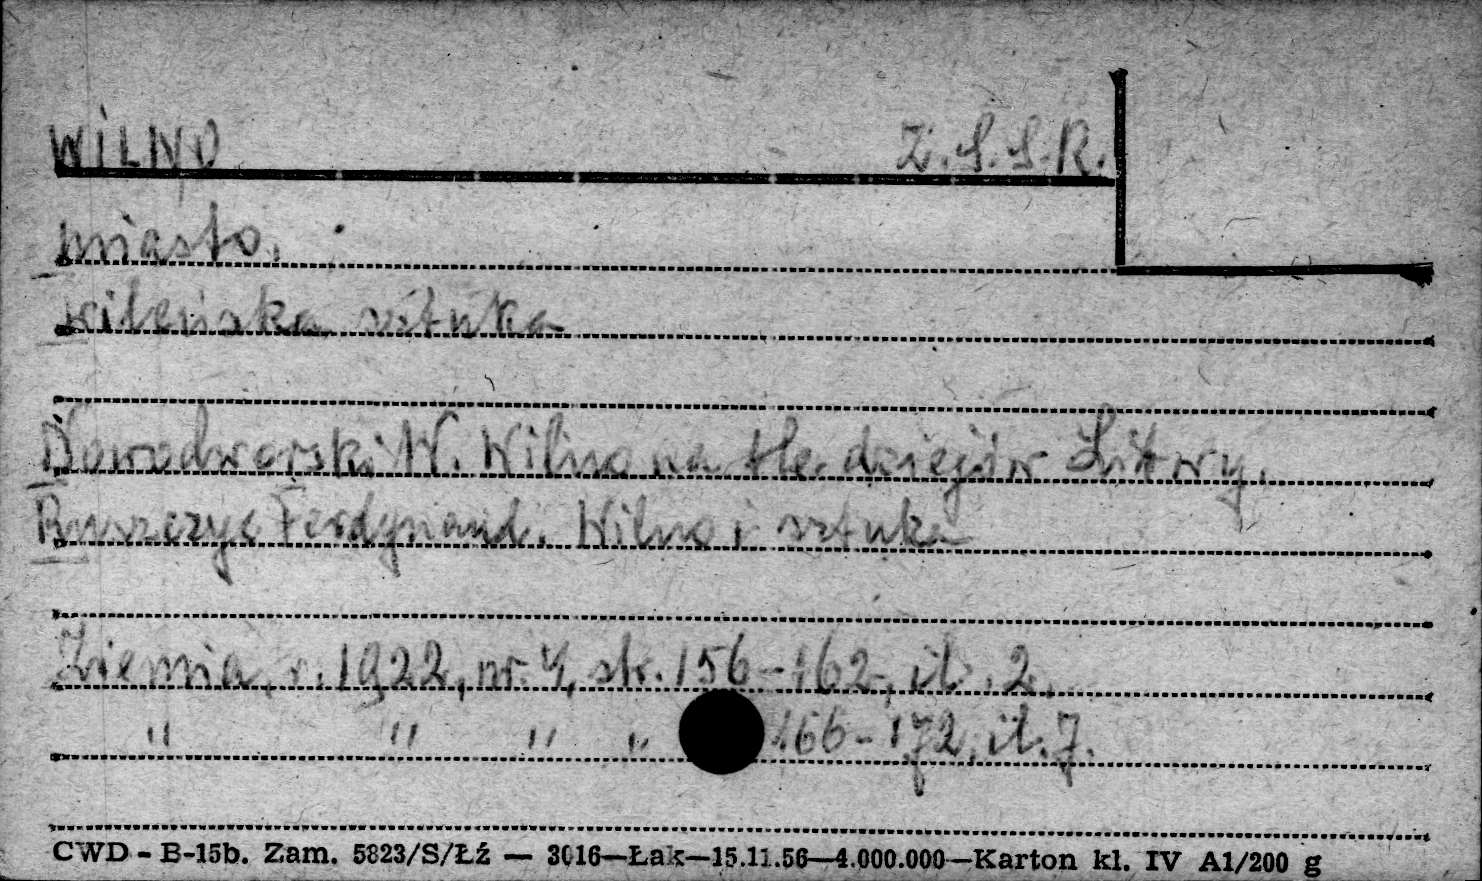 WILNO Z.S.S.R.
miasto.
wileńska sztuka
Nowodworski W. Wilno na tle dziejów Litwy.
Ruszczyc Ferdynand. Wilno i sztuka
Ziemia, r. 1922, nr. 4, str. 156-162, il. 2.
" " " " 166-172, il. 7.
CWD - B-15b. Zam. 5823/S/Łź — 3016—Łak—15.11.56—4.000.000—Karton kl. IV A1/200 g